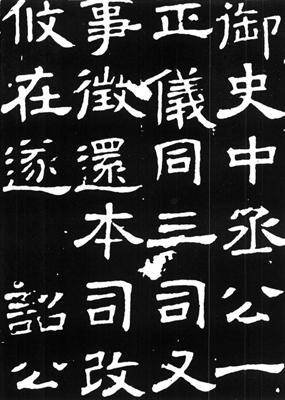 御史中丞公一
正儀同三司又
事徵還本司改
攸在遂 詔公